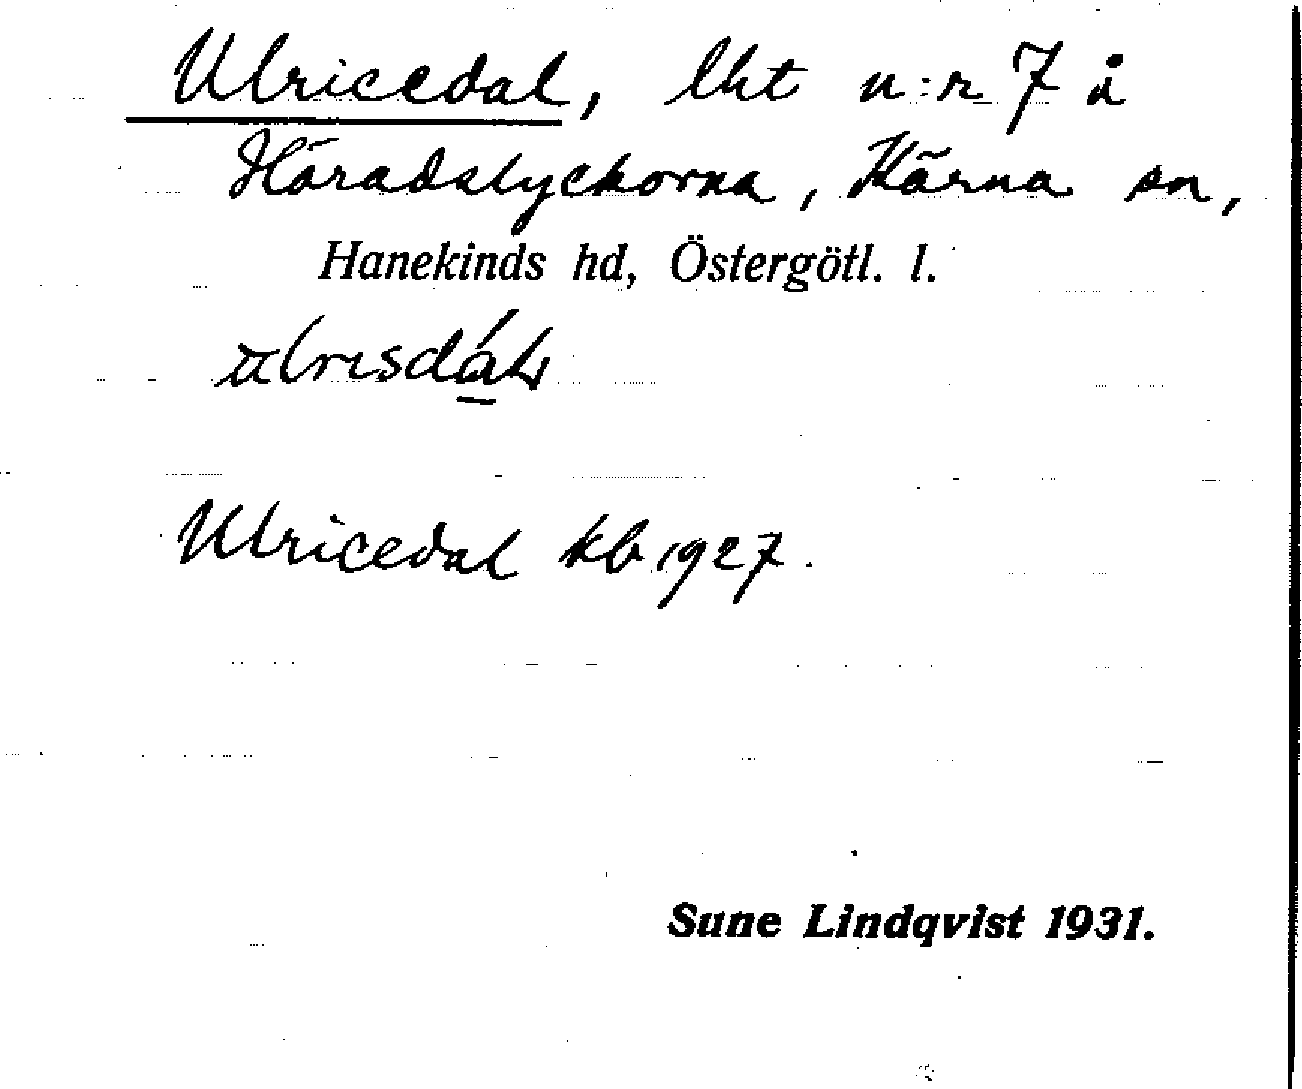 Ulricedal, lht n:r 7 å
Häradslyckorna, Kärna sn,
Hanekinds hd, Östergötl. l.
Ulricedal kb 1927.
Sune Lindqvist 1931.